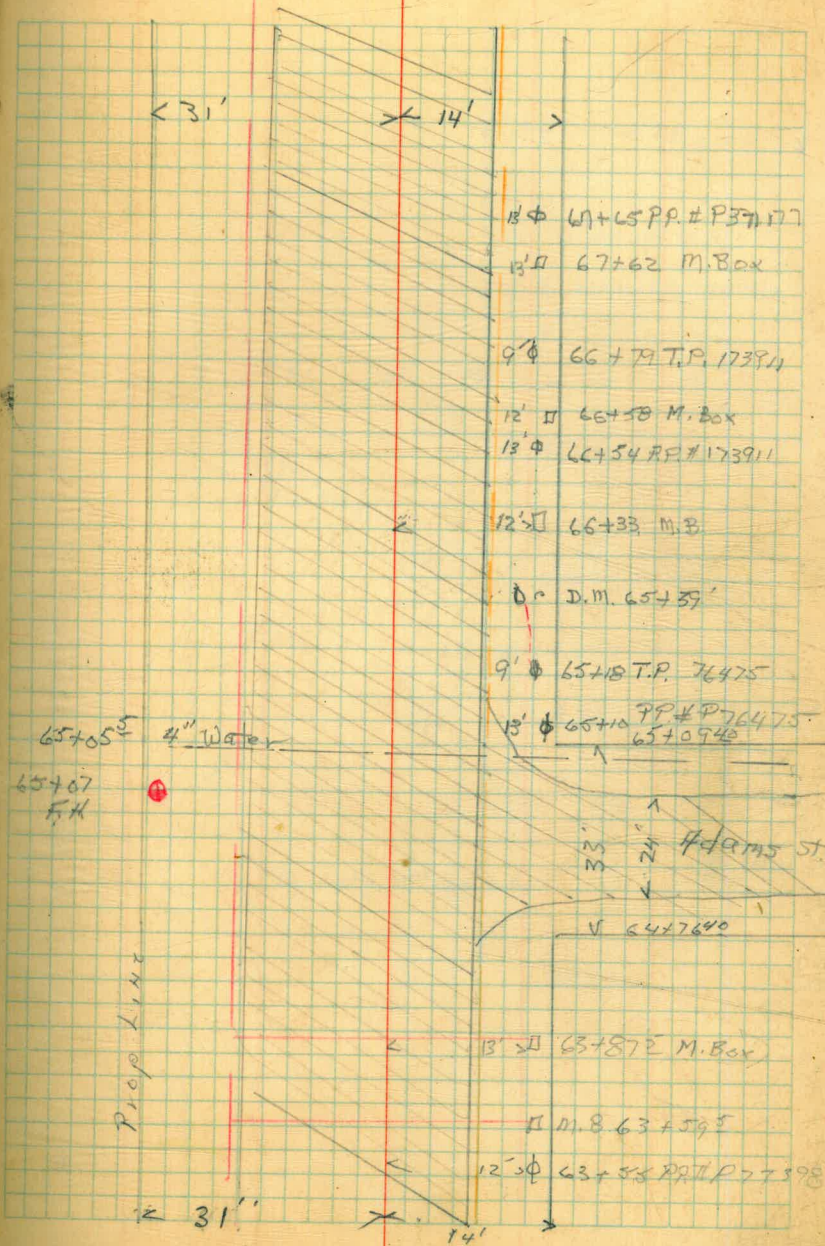 < 31' >< 14' >
13' 67+65 P.P. # P371177
13' 67+62 M.Box
9' 66+79 T.P. 173911
12' 66+58 M.Box
13' 66+54 P.P.# 173911
12' 66+33 M.B
D.M. 65+39'
9' 65+18 T.P. 76475
13' 65+10 PP # P76475
65+09 40
65+05 5 4" Water
65+07
F.H
33' 24' Adams St.
64+76 40
Prop Line
13' 63+87 5 M.Box
M.B 63+59 5
12' 63+55 P.P.# P77398
< 31'' >
14'